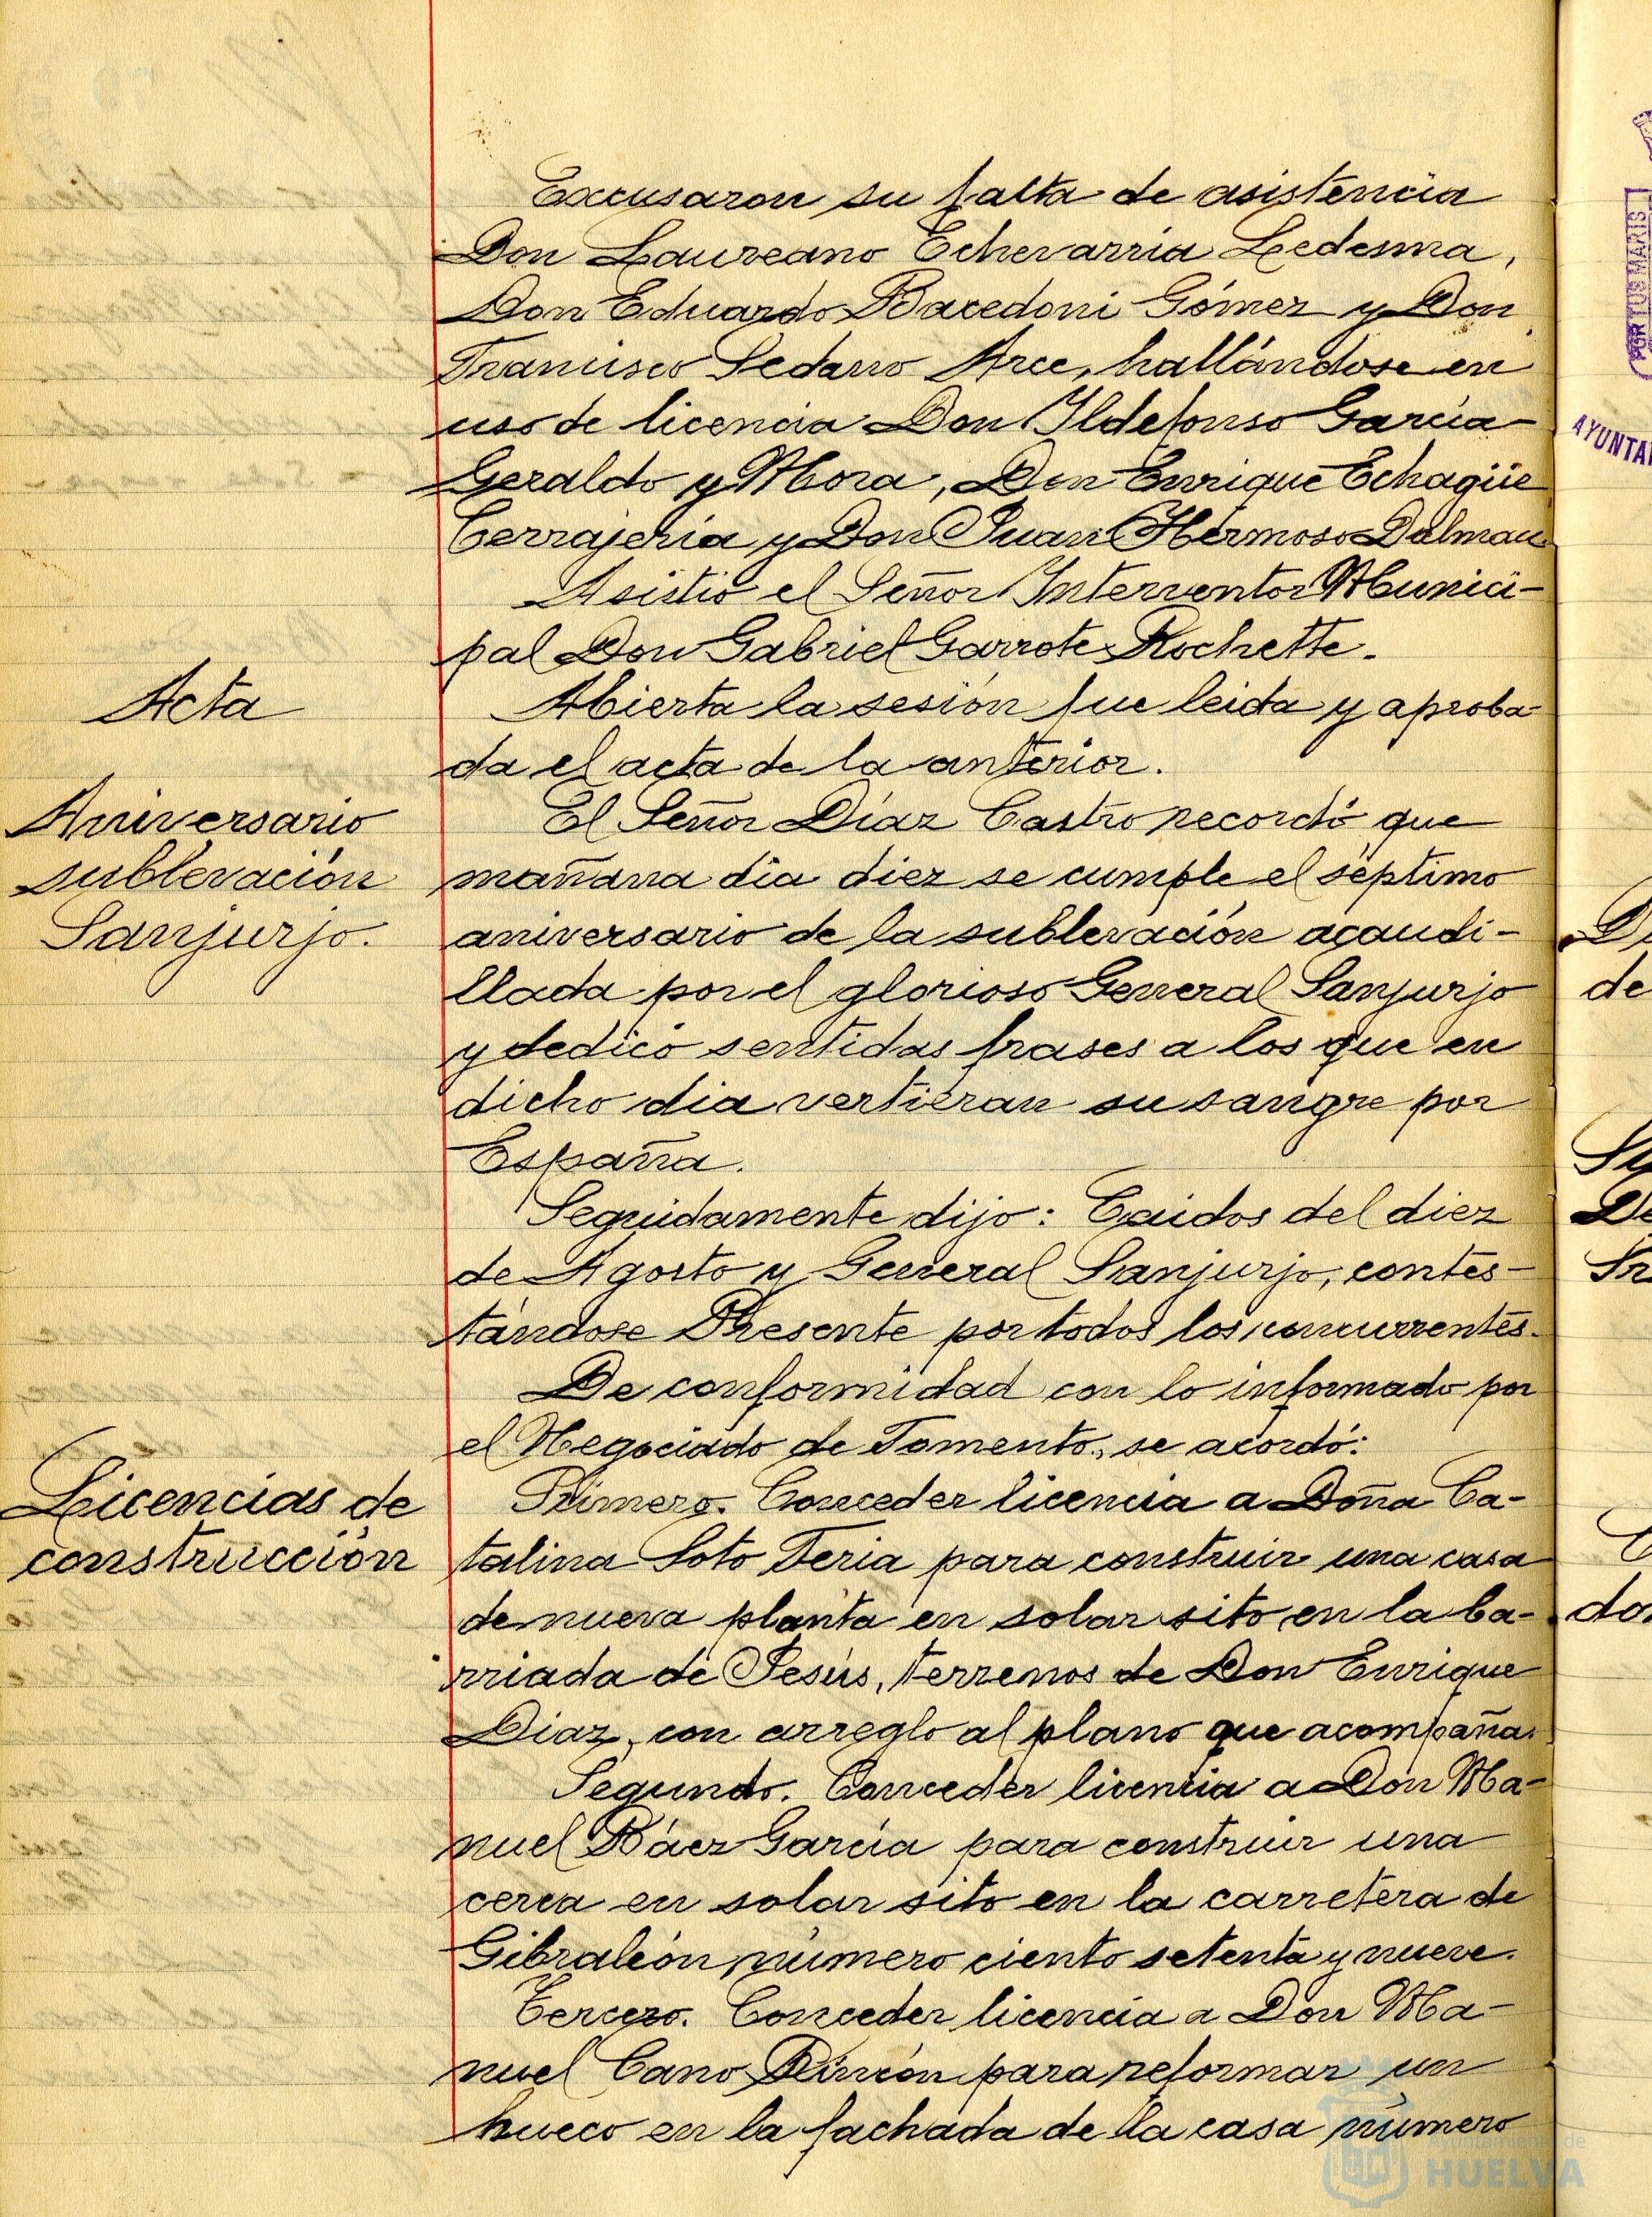 Excusaron su falta de asistencia
Don Laureano Echevarria Ledesma,
Don Eduardo Bacedoni Gómez y Don
Francisco Sedano Arce, hallándose en
uso de licencia Don Ildefonso Garcia
Geraldo y Mora, Don Enrique Echagüe
Cerrajeria y Don Juan Hermoso Dalmau
Asistió el Señor Interventor Munici-
pal Don Gabriel Garrote Rochette.
Acta
Abierta la sesión fue leida y aproba-
da el acta de la anterior.
Aniversario
sublevación
Sanjurjo.
El Señor Díaz Castro recordó que
mañana dia diez se cumple el séptimo
aniversario de la sublevación acaudi-
llada por el glorioso General Sanjurjo
y dedicó sentidas frases a los que en
dicho dia vertieran su sangre por
España.
Seguidamente dijo: Caidos del diez
de Agosto y General Sanjurjo, contes-
tándose Presente por todos los concurrentes.
De conformidad con lo informado por
el Negociado de Fomento, se acordó:
Licencias de
construcción
Primero. Conceder licencia a Doña Ca-
talina Soto Feria para construir una casa
de nueva planta en solar sito en la ba-
rriada de Jesús, terrenos de Don Enrique
Diaz, con arreglo al plano que acompaña.
Segundo. Conceder licencia a Don Ma-
nuel Báez García para construir una
cerca en solar sito en la carretera de
Gibraleón, número ciento setenta y nueve.
Tercero. Conceder licencia a Don Ma-
nuel Cano Rincón para reformar un
hueco en la fachada de la casa número
PORTUS MARIS
AYUNTA
de
do
Ayuntamiento de
HUELVA